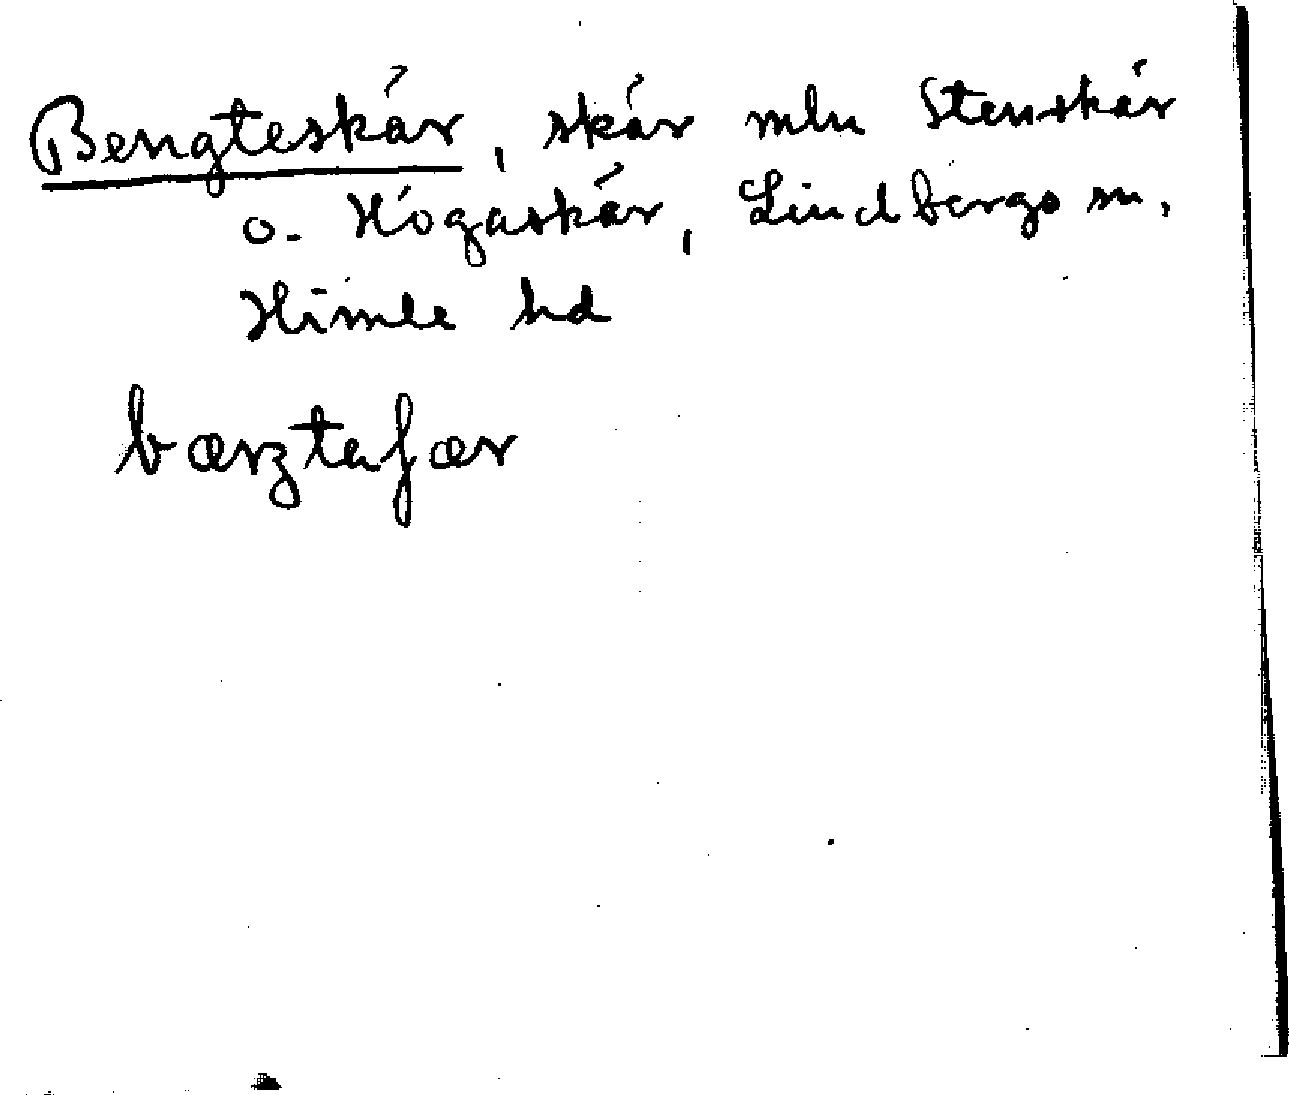 Bengteskär, skär mln Stenskär
o. Högaskär, Lindbergs sn,
Himle hd
bæŋtaʃær